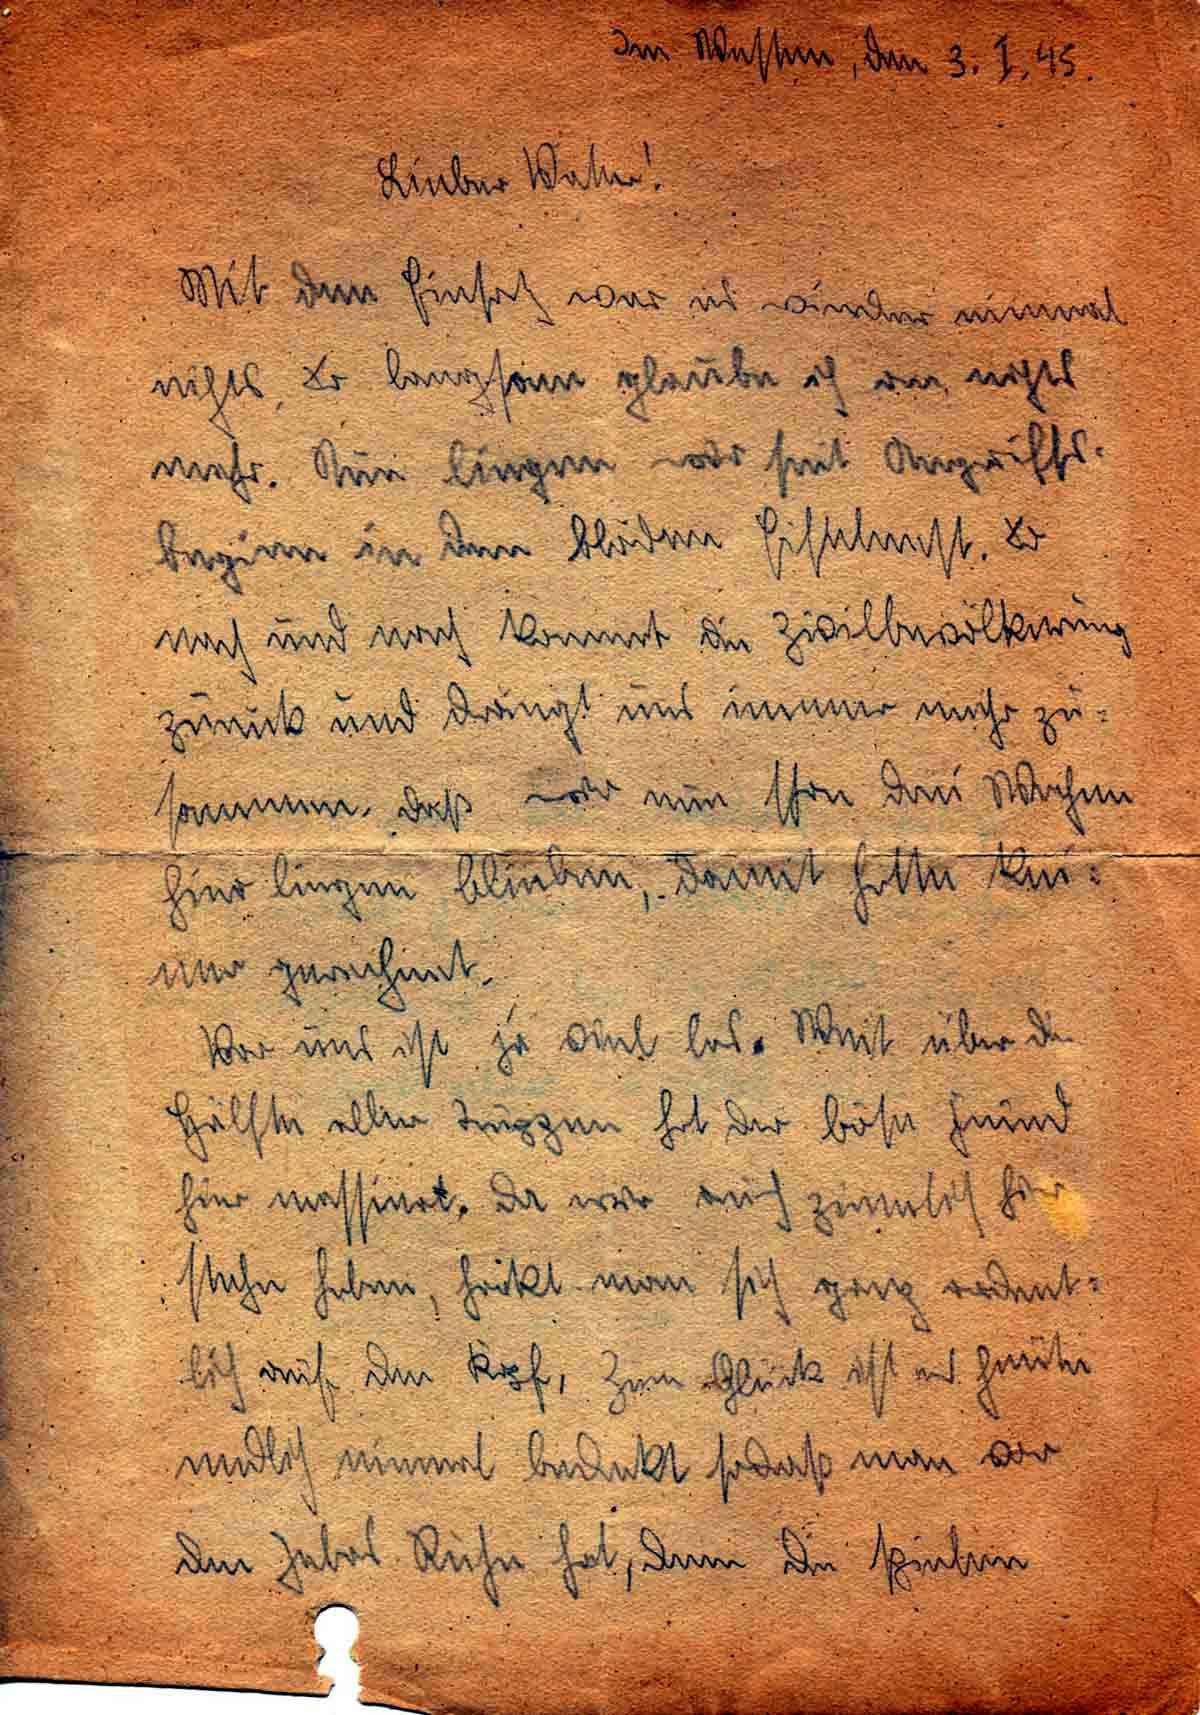 Im Westen, den 3. I. 45.
Lieber Vater!
Mit dem Einsatz war es wieder einmal
nichts, so langsam glaube ich an nichts
mehr. Nun liegen wir seit Angriffs-
beginn in dem blöden Eifelnest. So
nach und nach kommt die Zivilbevölkerung
zurück und drängt uns immer mehr zu-
sammen. Daß wir nun schon drei Wochen
hier liegen blieben, damit hatte kei-
ner gerechnet.
Vor uns ist ja viel los. Weit über die
Hälfte aller Truppen hat der böse Feind
hier massiert. Da wir auch ziemlich hier
stehn haben, haut man sich ganz ordent-
lich auf den Kopf, Zum Glück ist es heute
endlich einmal bedeckt sodaß man vor
den Jabos Ruhe hat, denn die